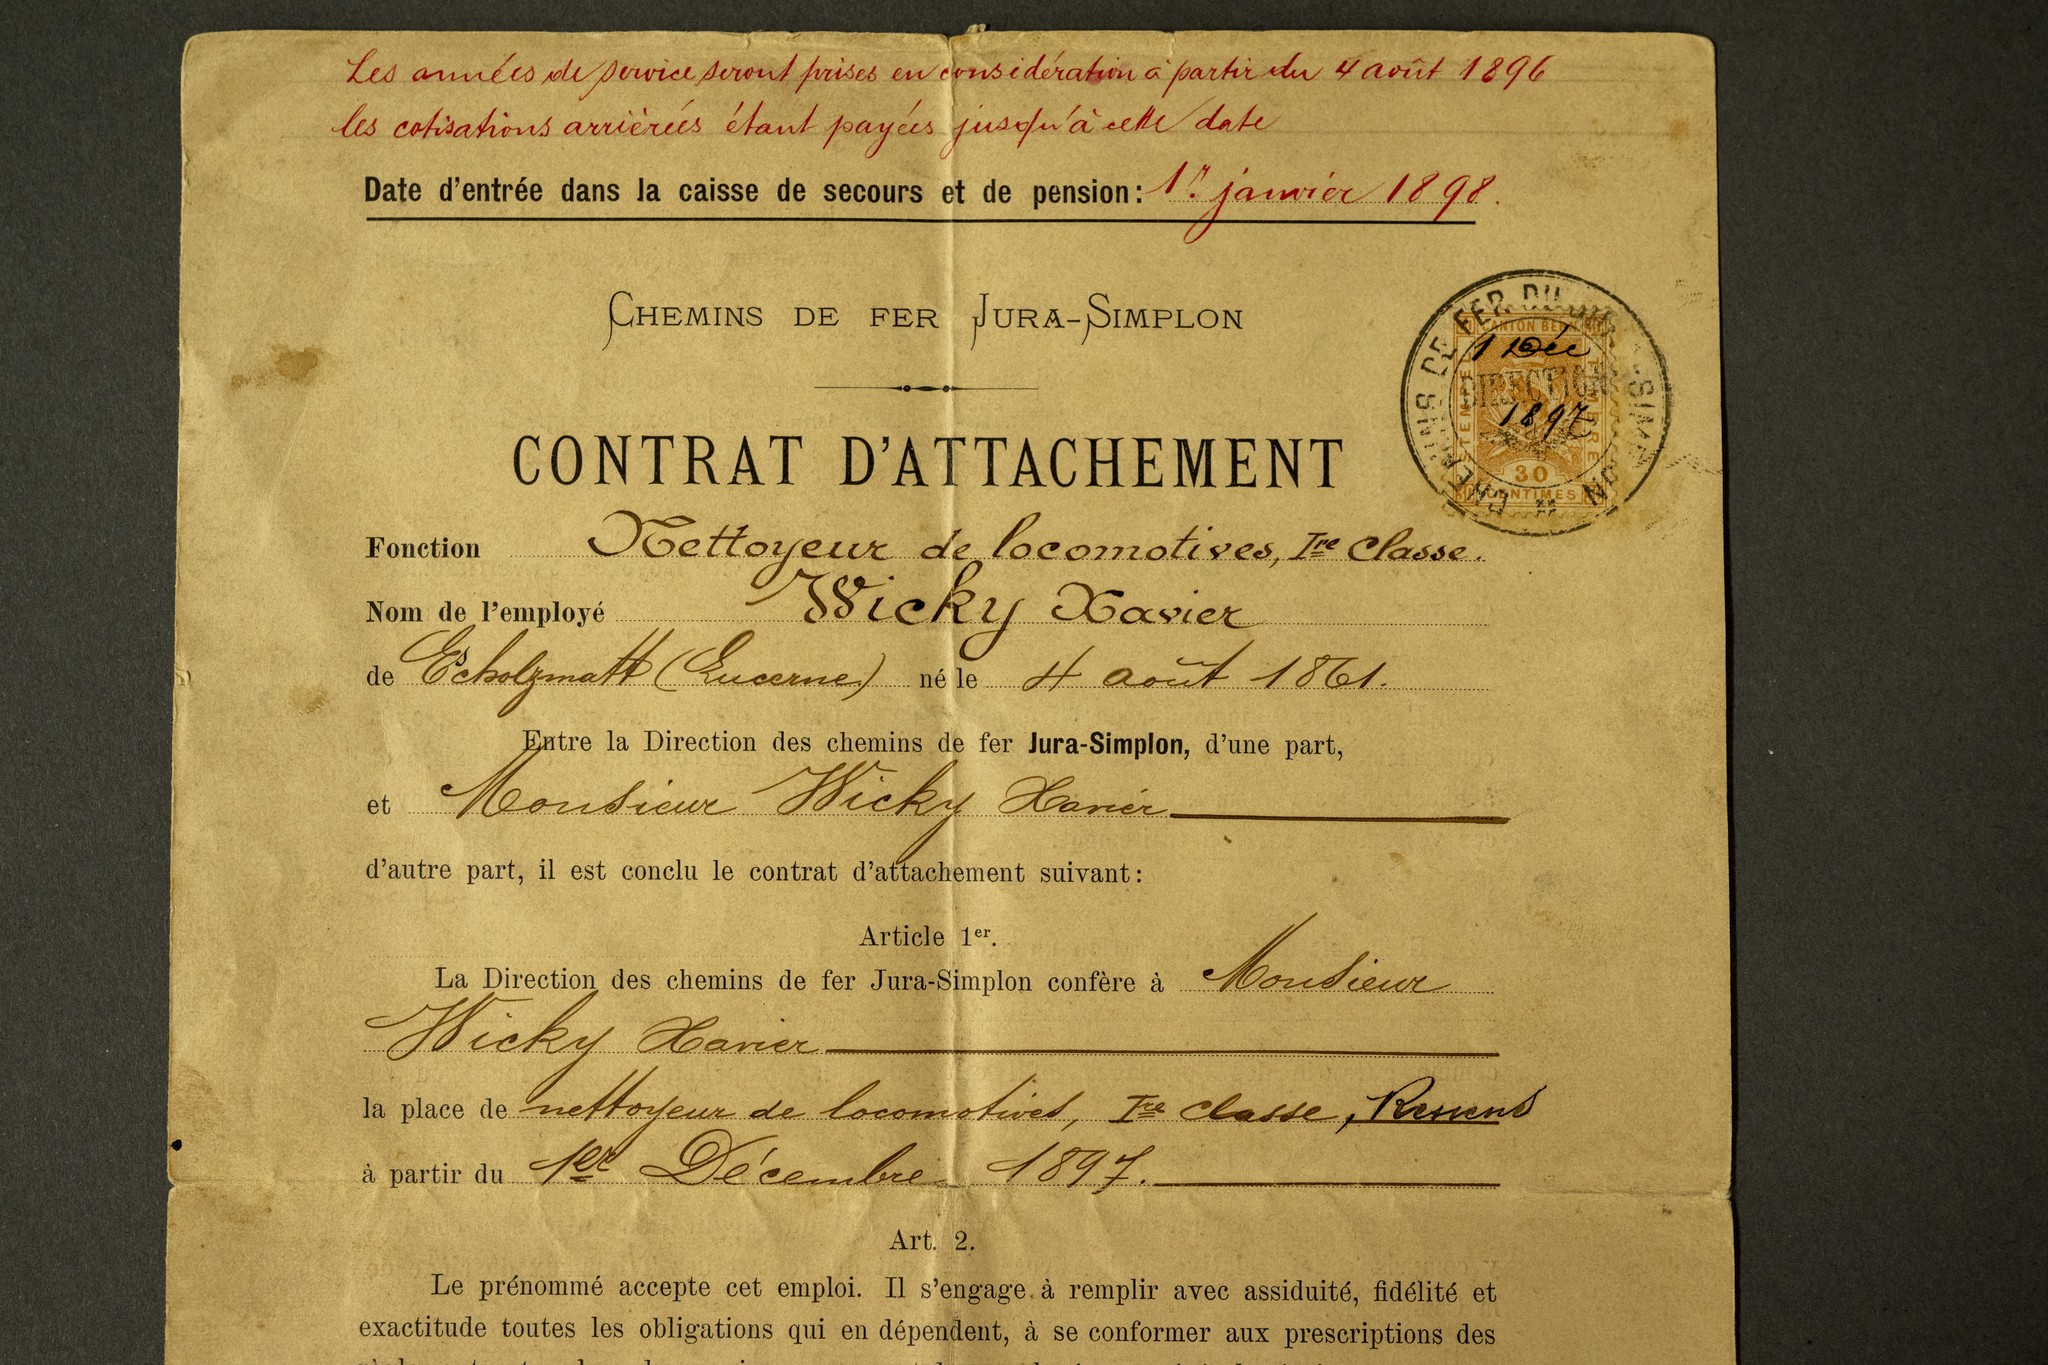 Les années de service seront prises en considération à partir du 4 août 1896
les cotisations arriérées étant payées jusqu'à cette date
Date d'entrée dans la caisse de secours et de pension: 1r. janvier 1898.
CHEMINS DE FER JURA-SIMPLON
CHEMINS DE FER DU JURA-SIMPLON
CANTON BERN
1 Déc
DIRECTION
1897
STEMPEL
TIMBRE
30
CENTIMES
CONTRAT D'ATTACHEMENT
Fonction Nettoyeur de locomotives, Ire classe.
Nom de l'employé Wicky Xavier
de Escholzmatt (Lucerne) né le 4 août 1861.
Entre la Direction des chemins de fer Jura-Simplon, d'une part,
et Monsieur Wicky Xavier
d'autre part, il est conclu le contrat d'attachement suivant:
Article 1er.
La Direction des chemins de fer Jura-Simplon confère à Monsieur
Wicky Xavier
la place de nettoyeur de locomotives, Ire classe, Renens
à partir du 1er Décembre 1897.
Art. 2.
Le prénommé accepte cet emploi. Il s'engage à remplir avec assiduité, fidélité et
exactitude toutes les obligations qui en dépendent, à se conformer aux prescriptions des